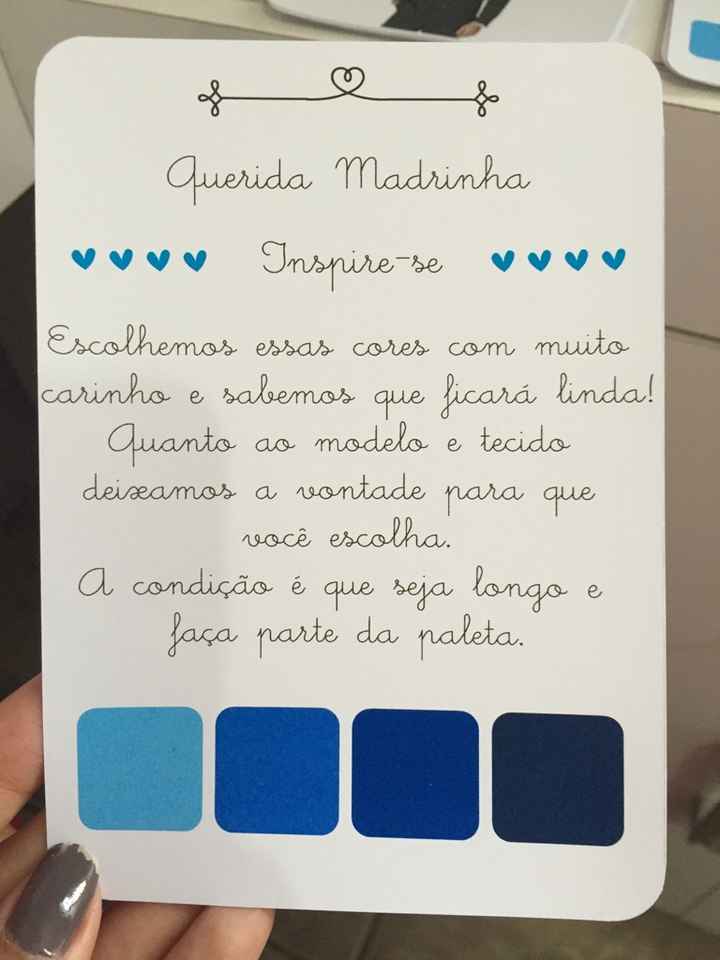 Querida Madrinha
Inspire-se
Escolhemos essas cores com muito
carinho e sabemos que ficará linda!
Quanto ao modelo e tecido
deixamos a vontade para que
você escolha.
A condição é que seja longo e
faça parte da paleta.